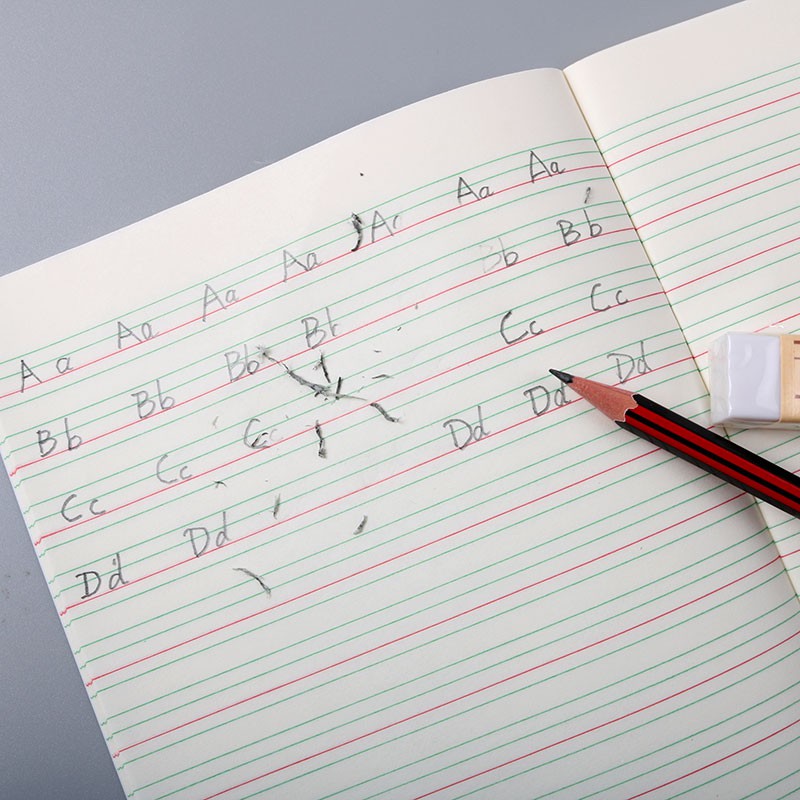 A a Aa Aa Aa A Aa Aa
Bb Bb Bb B b Bb
Cc Cc C Cc Cc
Dd Dd Dd Dd Dd